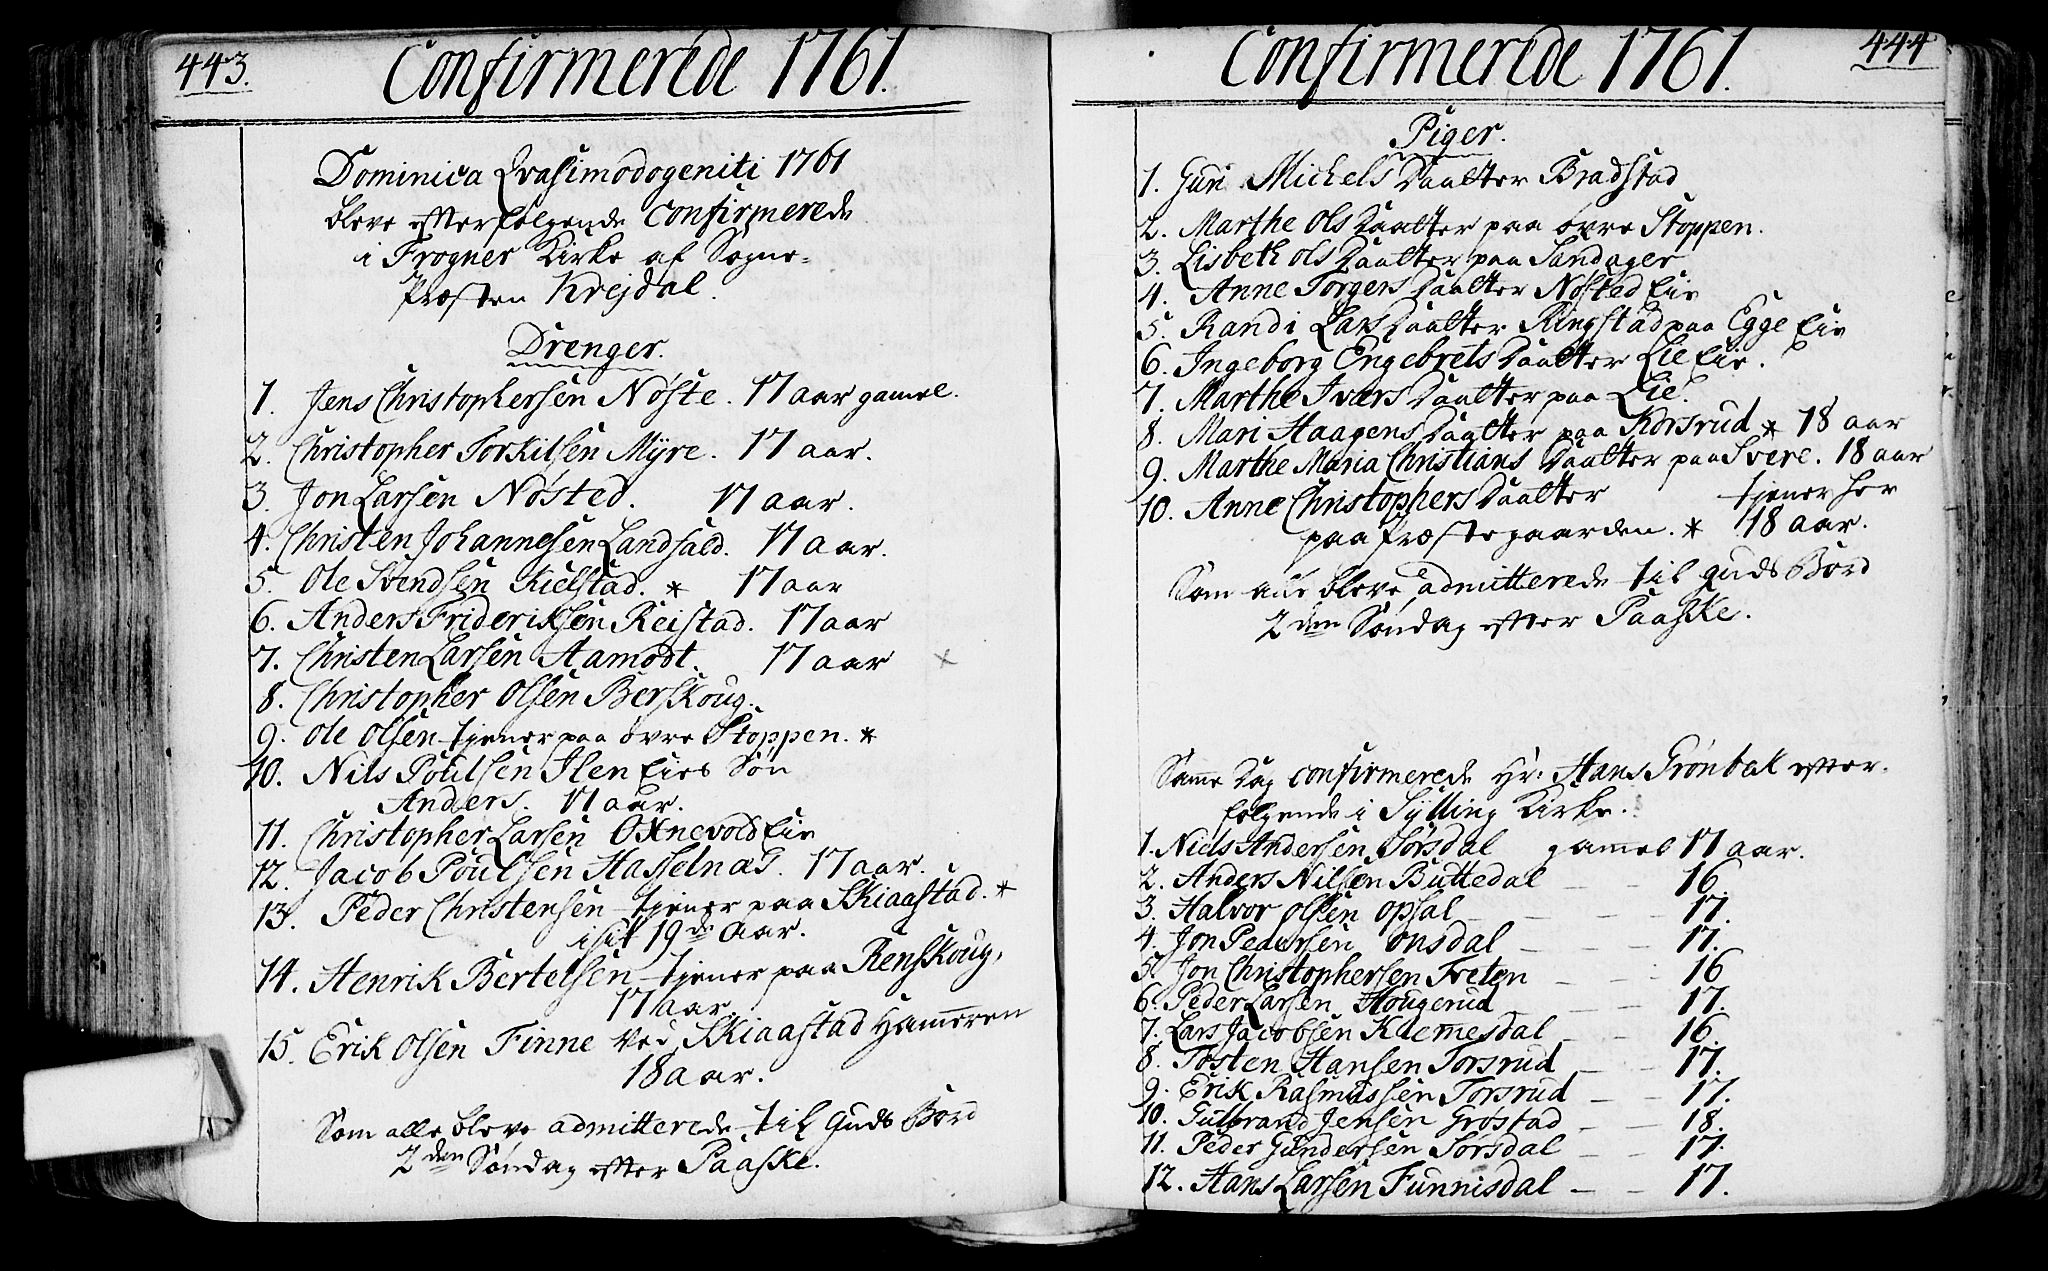 443.
Confirmerede 1761.
Dominica Qvasimodogeniti 1761
bleve efterfølgende Confirmerede
i Frogner Kirke af Sogne-
Præsten Krejdal.
Drenger.
1. Jens Christophersen Nøste. 17 aar gamel.
2. Christopher Torkilsen Myre. 17 aar.
3. Jon Larsen Nøsted. 17 aar.
4. Christen Johannesen Landfald. 17 aar.
5. Ole Svendsen Kielstad. * 17 aar
6. Anders Frideriksen Reistad. 17 aar
7. Christen Larsen Aamodt. 17 aar ×
8. Christopher Olsen Berskoug.
9. Ole Olsen tjener paa øvre Stoppen. *
10. Nils Poulsen Ilen Eies Søn
Anders. 17 aar.
11. Christopher Larsen Oxnevold Eie
12. Jacob Poulsen Hasselnæs. 17 aar.
13. Peder Christensen tjener paa Skiaastad. *
i sit 19de Aar.
14. Henrik Bertelsen tjener paa Renskoug,
17 aar.
15. Erik Olsen Finne ved Skiaastad Hameren
18 aar.
Som alle bleve admitterede til Guds Bord
2den Søndag efter Paaske.
444
Confirmerede 1761.
Piger.
1. Guri Michels Daatter Bradstad
2. Marthe Ols Daatter paa øvre Stoppen.
3. Lisbeth Ols Daatter paa Sandager
4. Anne Torgers Daatter Nøsted Eie
5. Randi Lars Daatter Ringstad paa Egge Eie
6. Ingeborg Engebrets Daatter Lie Eie.
7. Marthe Ivers Daatter paa Lie.
8. Mari Haagens Daatter paa Korsrud * 18 aar
9. Marthe Maria Christians Daatter paa Svere. 18 aar
10. Anne Christophers Daatter tjener her
paa Præstegaarden. * 18 aar.
Som alle bleve admitterede til Guds Bord
2den Søndag efter Paaske.
Samme Dag confirmerede Hr: Hans Grønbek efter-
følgende i Sylling Kirke.
1. Niels Andersen Sørsdal gamel 17 aar.
2. Anders Nilsen Buttedal — — 16.
3. Halvor Olsen Opsal — — — 17.
4. Jon Pedersen Onsdal — — 17.
5. Jon Christophersen Treten — — 16
6. Peder Larsen Hougerud — — 17.
7. Lars Jacobsen Klemesdal — — 16.
8. Tosten Hansen Torsrud — — 17.
9. Erik Rasmussen Torsrud — — 17.
10. Gulbrand Jensen Grøstad — — 18.
11. Peder Gundersen Sørsdal — — 17.
12. Hans Larsen Funnisdal — — 17.